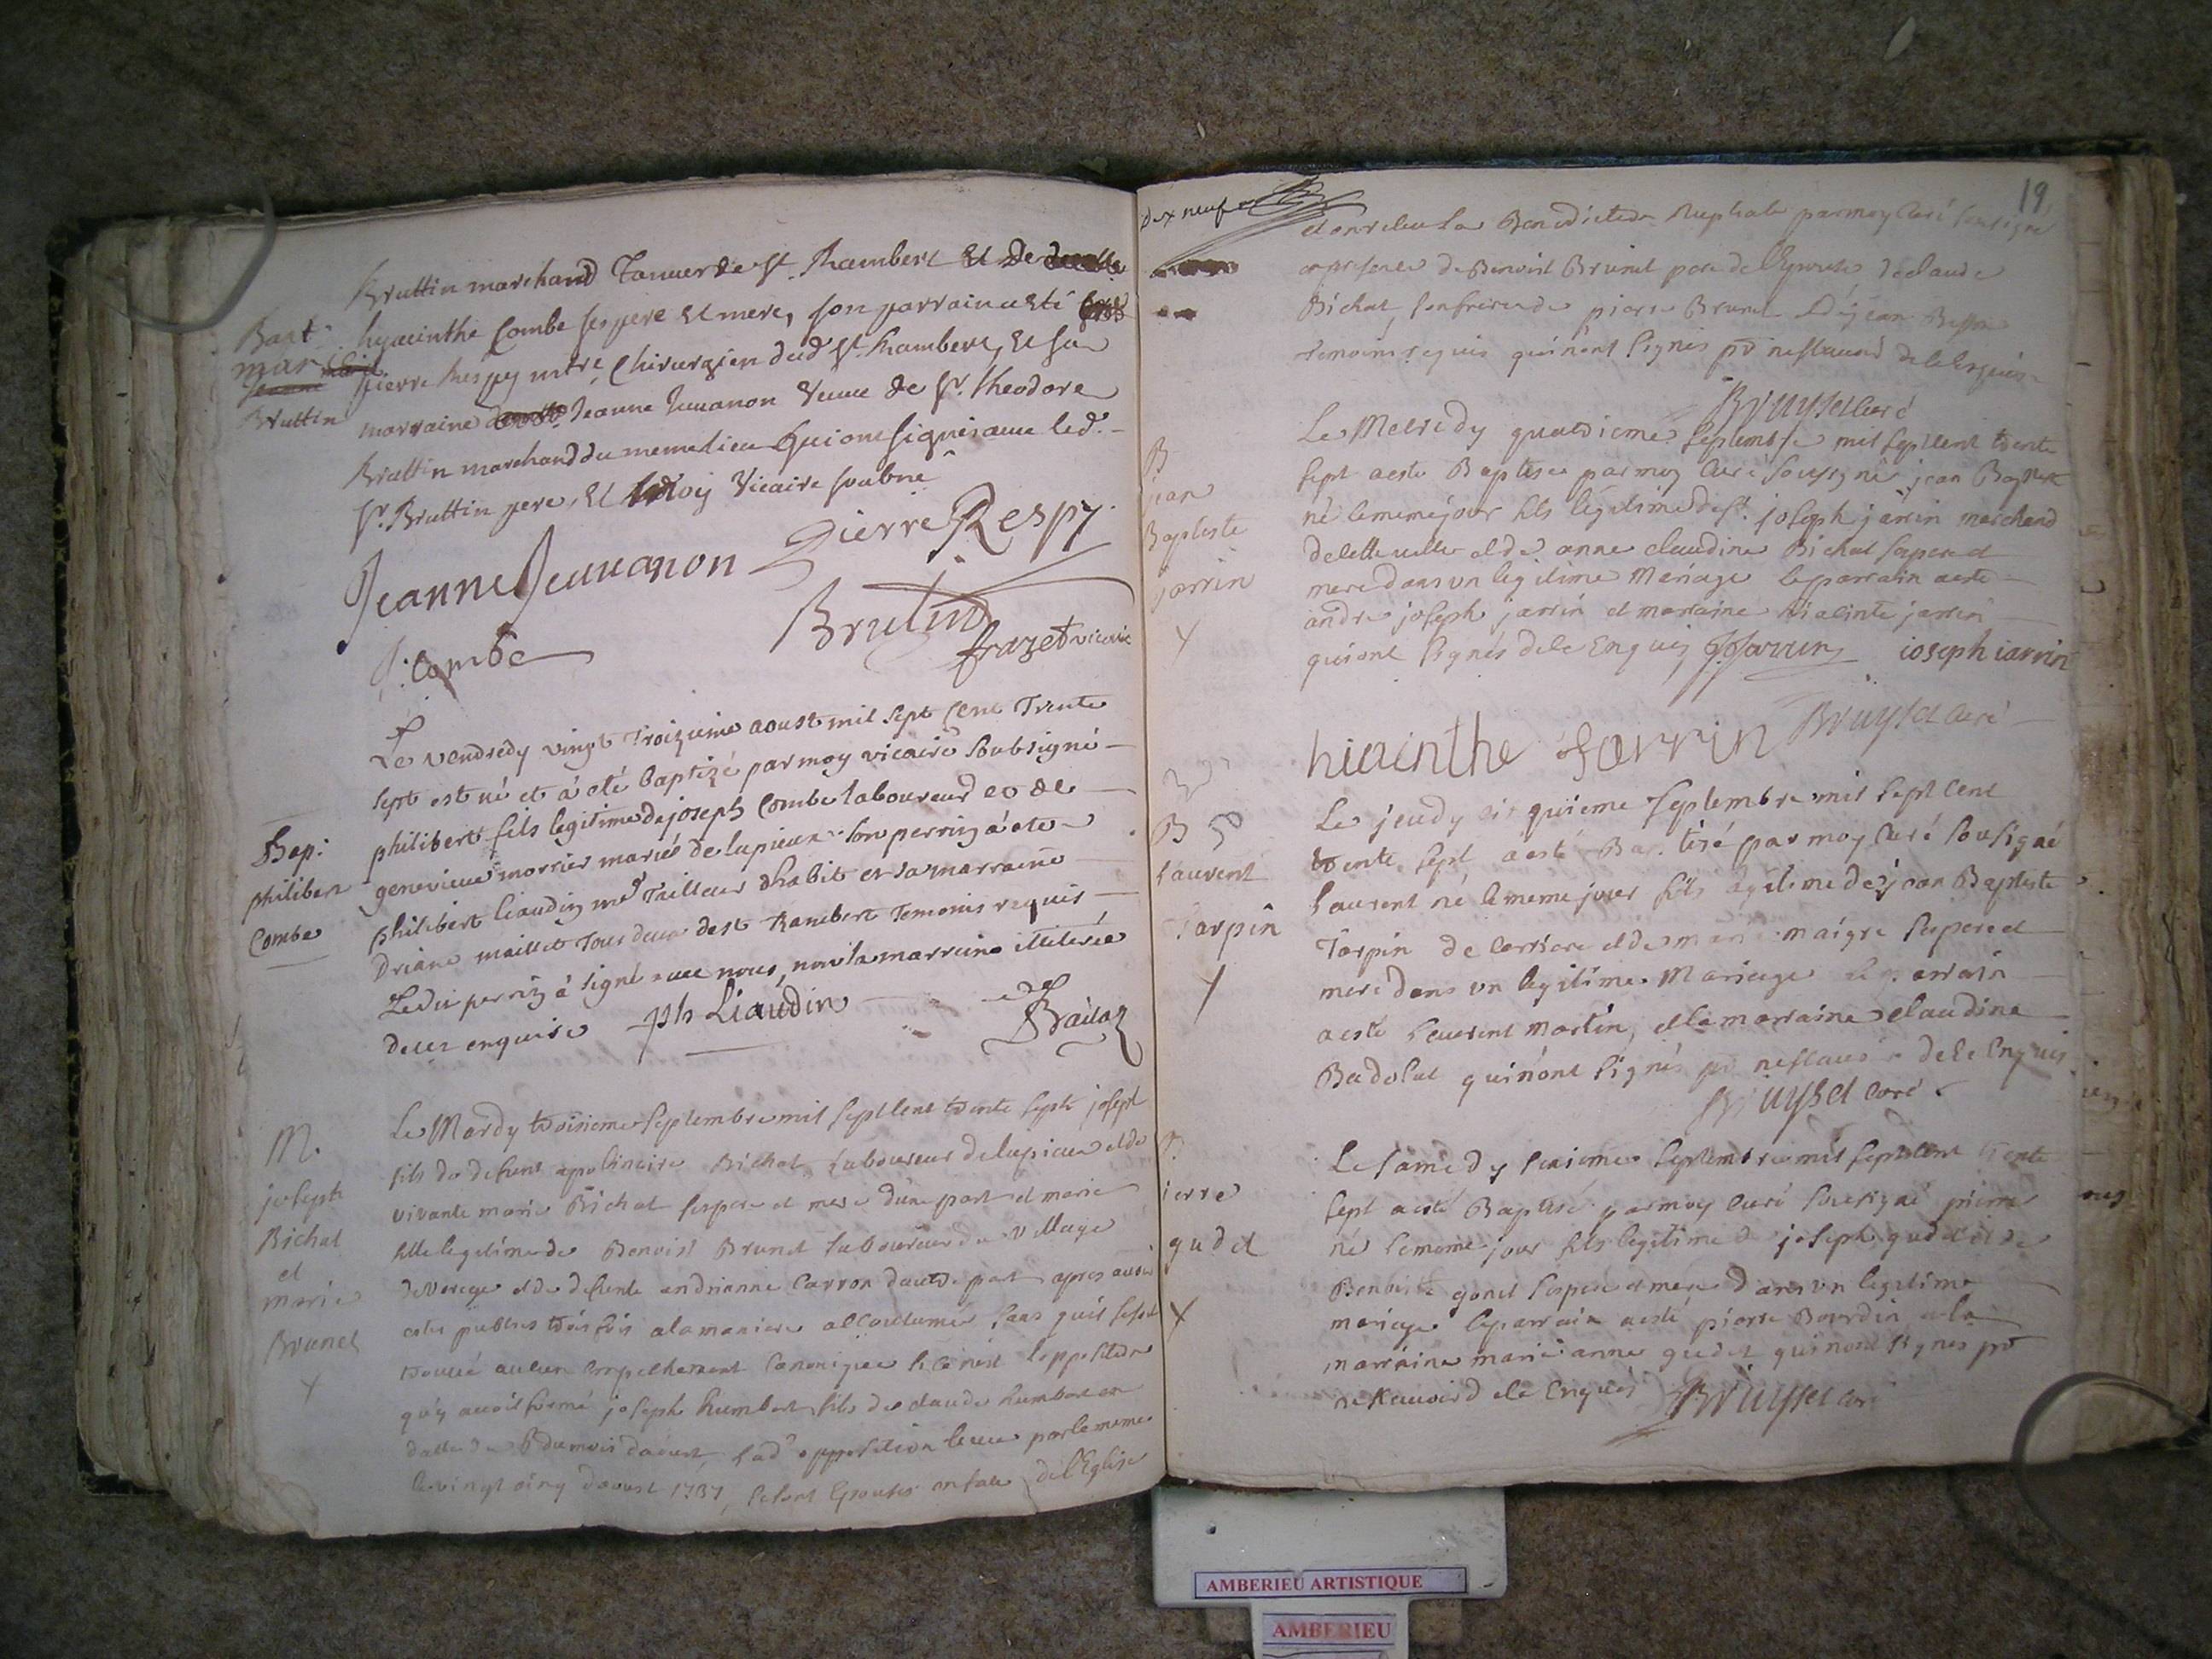 Bruttin marchand Tanneur de St. Rambert et de
Bapt. hyacinthe Combe ses pere et mere, son parrain a esté
pierre Respy mtre Chirurgien dud. St. Rambert, et sa
Bruttin
marraine Jeanne Juuanon veuve de Sr. theodore
Bruttin marchand du meme lieu qui ont signés avec led.
Sr. Bruttin pere, et moy vicaire soubné
Jeanne Jeuuanon
Pierre Respy
Brutin
Combe
frazet vicaire
Le vendredy vingt troizieme aoust mil sept cent Trente
sept est né et à eté baptizé par moy vicaire soubsigné
Bap:
philibert
Combe
philibert fils legitime de joseph Combe laboureur et de
genevieue morrier mariés de lupieux son perrin à ete
philibert liaudin me Tailleur dhabits et sa marraine
Driane maillet Tous deux de st Rambert Temoins requis
Ledit perrin à signé avec nous, non la marraine illiterée
de ce enquise
ph Liaudin
M.
joseph
Bichat
et
marie
Brunet
Le Mardy troisieme septembre mil sept cent trente sept joseph
fils de defunt apolinaire Bichat laboureur de lupieux et de
vivante marie Bichat ses pere et mere dune part et marie
fille legitime de Benoist Brunet laboureur du village
de Vorage et de defunte andrianne Carron dautre part apres avoir
estes publies trois fois a la maniere accoutumée sans quil se soit
trouvé aucun empechement canonique si ce nest lopposition
quy auoit formé joseph humbert fils de claude humbert en
datte du 6 du mois daoust, lad. opposition levee par le meme
le vingt cinq daoust 1737, se sont epousés en face de l'Eglise
dix neuf
19
et ont receu la Benediction Nuptiale par moy Curé sousigné
en presence de Benoist Brunet pere de l'Epouse de claude
Bichat, son frere de pierre Brunet et de jean
temoins requis qui nont signés pr ne scauoir de ce enquis
Bruyset Curé
B
jean
Baptiste
jarrin
Le Mecredy quatrieme septembre mil sept cent trente
sept a esté Baptisé par moy Curé sousigné jean Baptiste
né le meme jour fils légitime de Sr. joseph jarrin marchand
de cette ville et de anne claudine Bichat ses pere et
mere dans un legitime Mariage le parrain a esté
andre joseph jarrin et marraine hiacinte jarrin
qui ont signés de ce enquis
JJarrin
joseph iarrin
hiacinthe jarrin
Bruyset Curé
B
Laurent
Tarpin
Le jeudy cinquieme septembre mil sept cent
trente sept a esté Baptisé par moy Curé sousigné
Laurent né le meme jour fils legitime de jean Baptiste
Tarpin de Corriere et de marie maigre ses pere et
mere dans un legitime Mariage le parrain
a esté Laurent Martin, et la marraine claudine
Badolat qui nont signés pr ne scavoir de ce enquis
Bruyset Curé
B
ierre
gudet
Le samedy septieme septembre mil sept cent trente
sept a esté Baptisé par moy Curé sousigné pierre
né le meme jour fils legitime de joseph gudet et de
Benoiste gonet ses pere et mere dans un legitime
mariage le parrain a esté pierre Bourdin et la
marraine marie anne gudet qui nont signés pr
ne scavoir de ce enquis
Bruyset Curé
AMBERIEU ARTISTIQUE
AMBERIEU